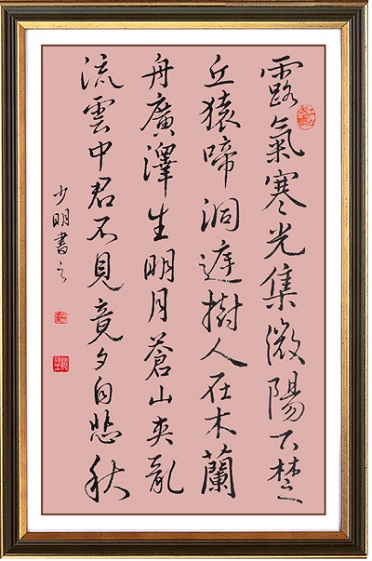 露氣寒光集微陽下楚
丘猿啼洞庭樹人在木蘭
舟廣澤生明月蒼山夾亂
流雲中君不見竟夕自悲秋
少明書之